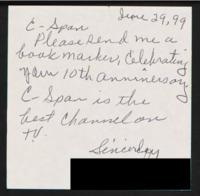 June 29, 99
C-Span
Please send me a
book marker, Celebrating
your 10th anninersary
C-Span is the
best Channel on
T.V.
Sincerely